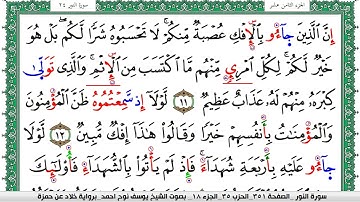 الجزء الثامن عشر سورة النور ٢٤
إِنَّ ٱلَّذِينَ جَآءُو بِٱلْإِفْكِ عُصْبَةٌ مِّنكُمْ ۚ لَا تَحْسَبُوهُ شَرًّا لَّكُم ۖ بَلْ هُوَ
خَيْرٌ لَّكُمْ ۚ لِكُلِّ ٱمْرِيٍٕ مِّنْهُم مَّا ٱكْتَسَبَ مِنَ ٱلْإِثْمِ ۚ وَٱلَّذِى تَوَلَّىٰ
كِبْرَهُۥ مِنْهُمْ لَهُۥ عَذَابٌ عَظِيمٌ ١١ لَّوْلَآ إِذ سَّمِعْتُمُوهُ ظَنَّ ٱلْمُؤْمِنُونَ
وَٱلْمُؤْمِنَٰتُ بِأَنفُسِهِمْ خَيْرًا وَقَالُوا۟ هَٰذَآ إِفْكٌ مُّبِينٌ ١٢ لَّوْلَا
جَآءُو عَلَيْهِ بِأَرْبَعَةِ شُهَدَآءَ ۚ فَإِذْ لَمْ يَأْتُوا۟ بِٱلشُّهَدَآءِ فَأُو۟لَٰٓئِكَ
سورة النور الصفحة ٣٥١ الحزب ٣٥ الجزء ١٨ بصوت الشيخ يوسف نوح احمد برواية خلاد عن حمزة